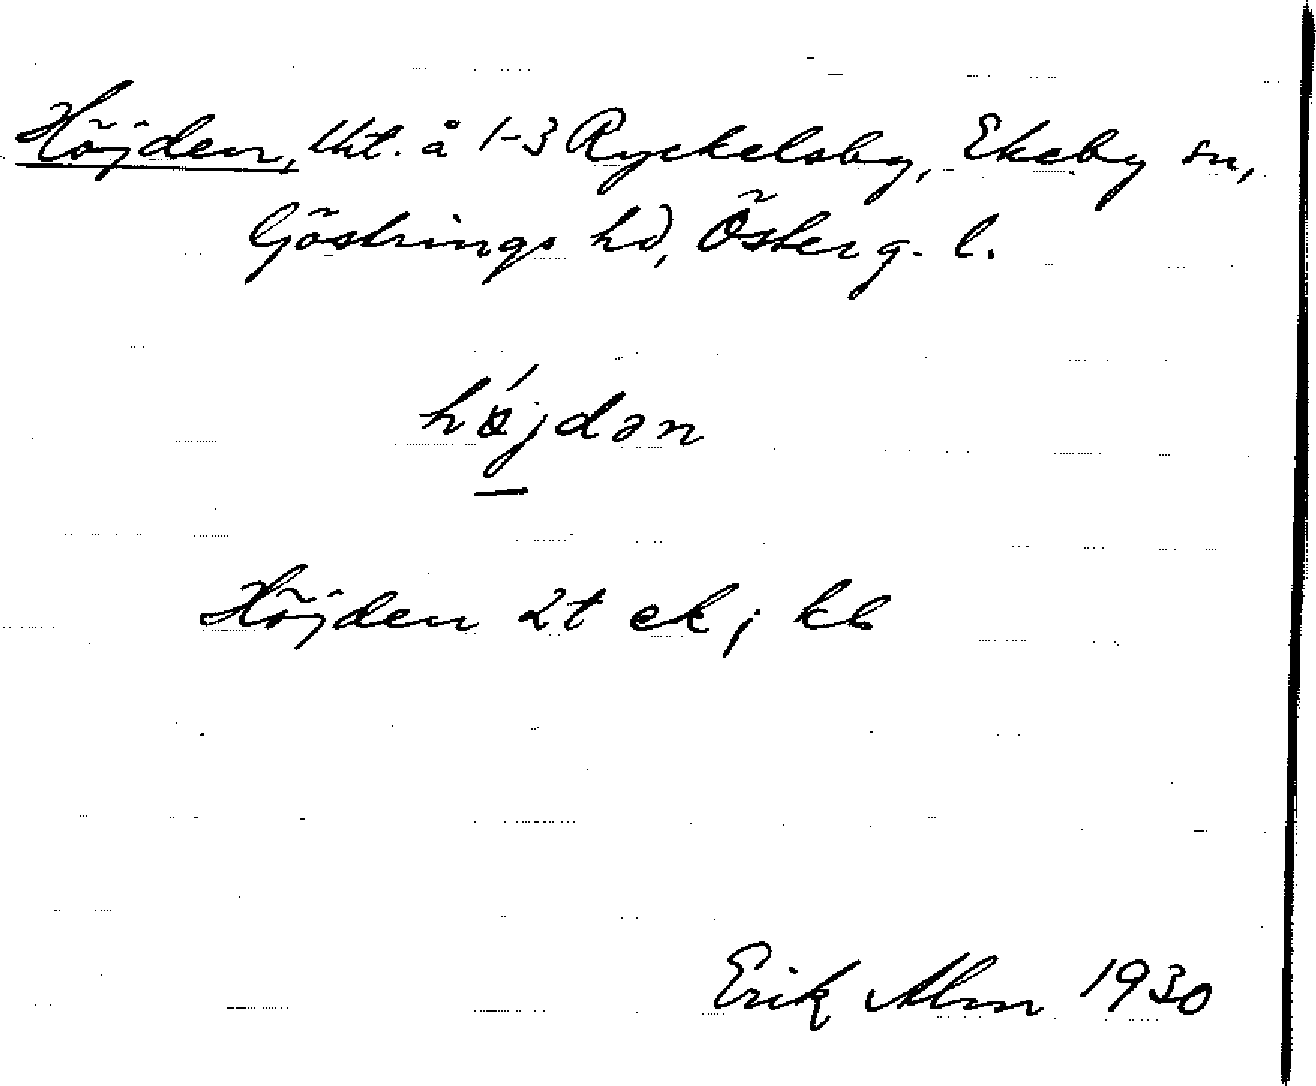 Höjden, lht. å 1-3 Ryckelsby, Ekeby sn,
Göstrings hd, Österg. l.
hǿjdən
Höjden 2t ek; kb
Erik Alm 1930